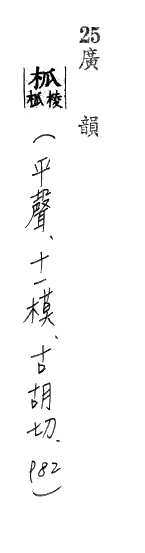 25 廣韻
柧 柧棱
(平聲、十一模、古胡切、P82)